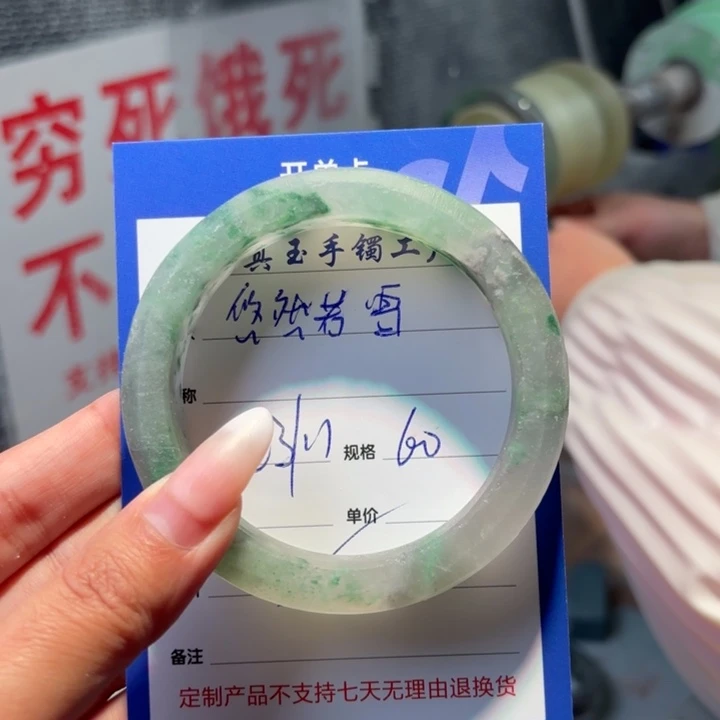 穷死饿死
不
支持
开单卡
玉手镯工厂
悠然若雪
称
规格 60
单价
备注
定制产品不支持七天无理由退换货